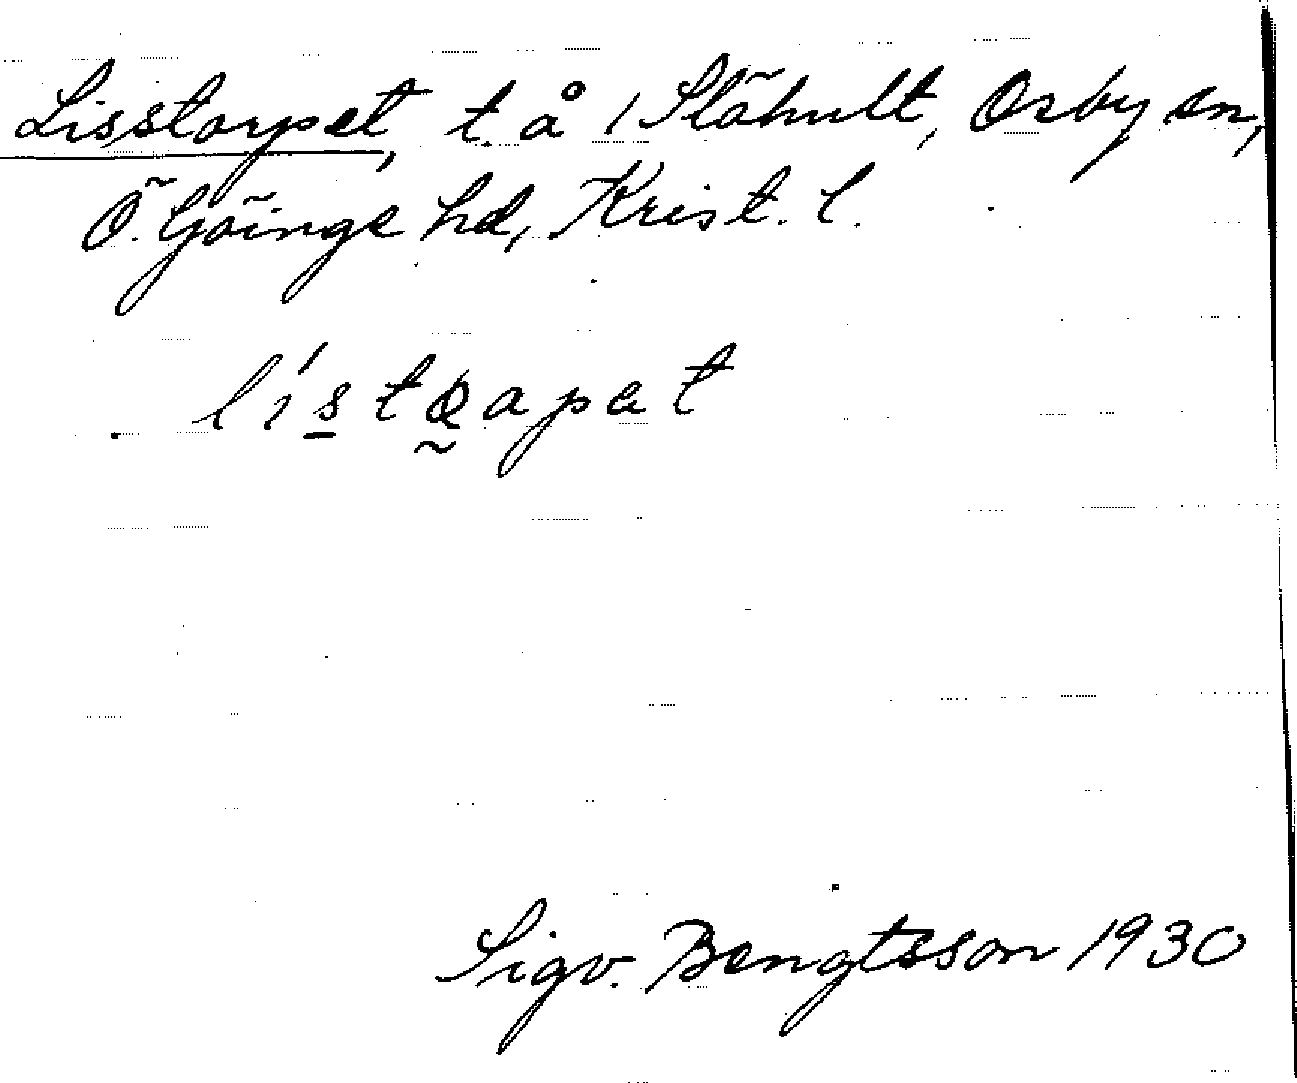 Lisstorpet, t å 1 Slähult, Osby sn,
Ö. Göinge hd, Krist. l.
Sigv. Bengtsson 1930